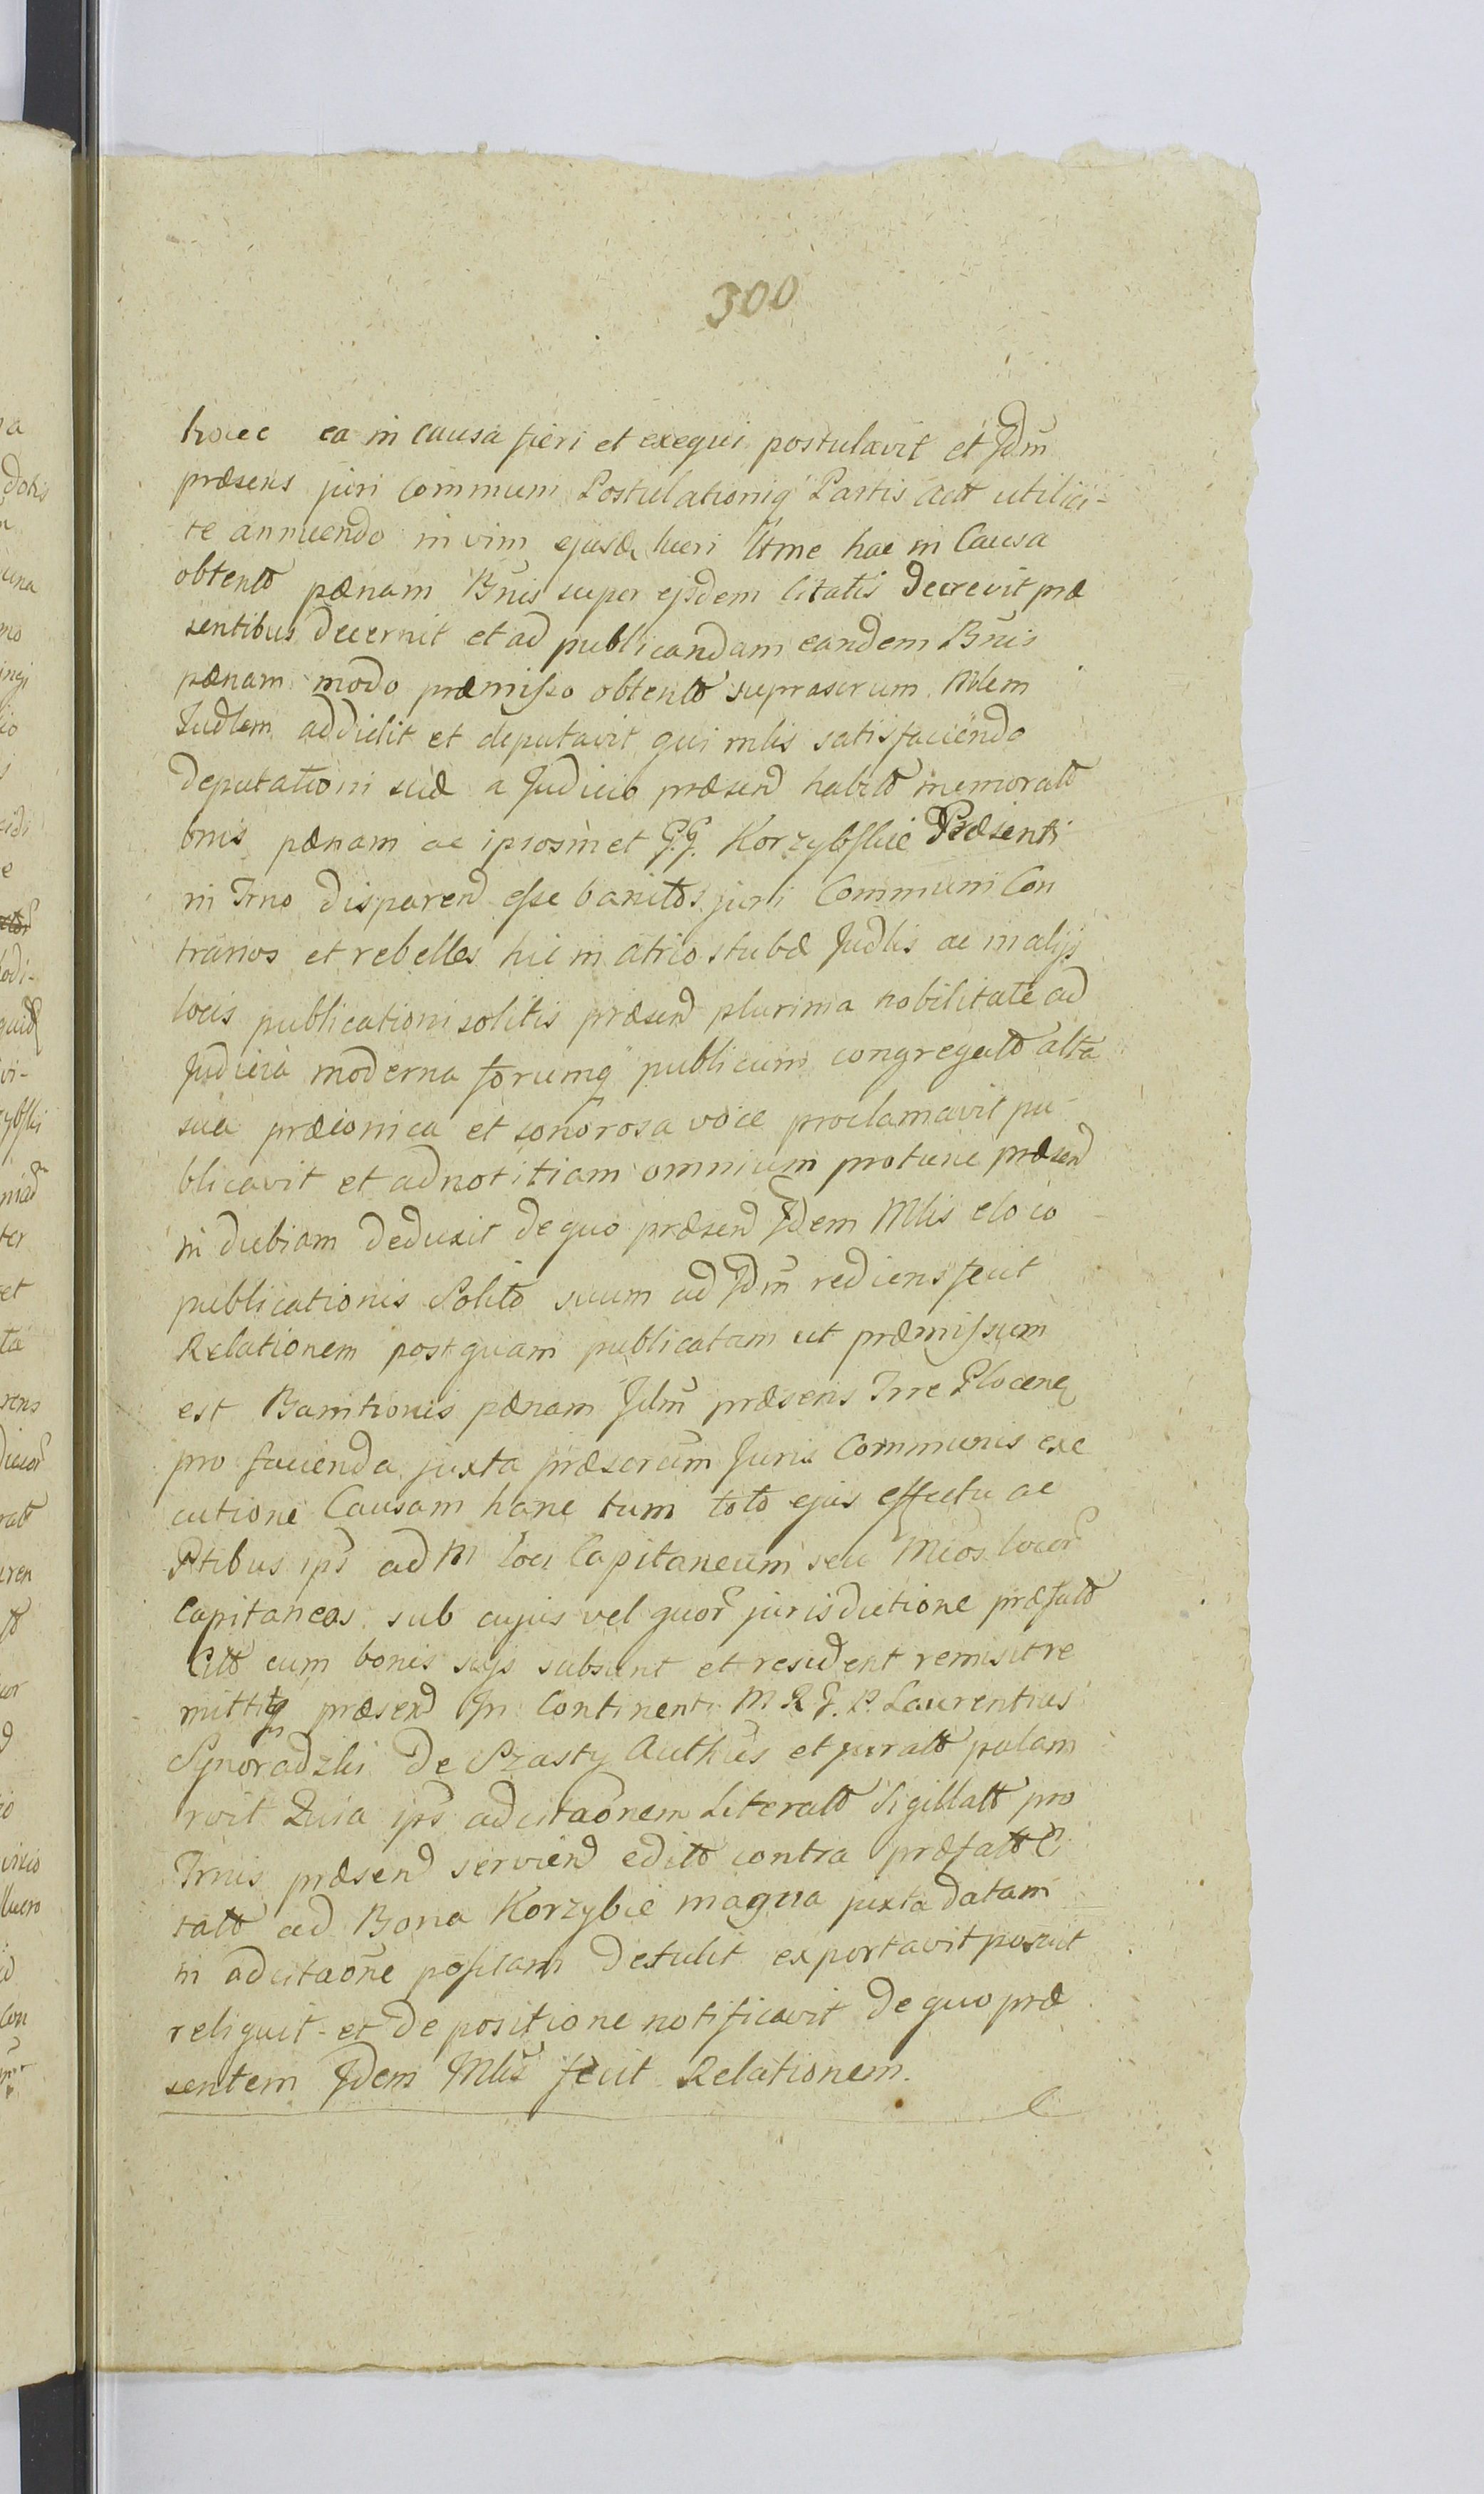 300
haec ea in causa fieri et exequi postulavit et Jdm̄
præsens juri Communi Postulationiq̃ Partis Actt utilici-
te annuendo in vim ejusd lucri Ultme hac in Causa
obtentt pænam Bn̄is super ejsdem Citatis decrevit præ
sentibus decernit et ad publicandam eandem Bn̄is
pænam modo præmisso obtentt suprascrum Mlem
Judlem addidit et deputavit qui mlis satisfaciendo
deputationi suæ a Judicio præsend habitt memoratt
bnis pænam ac ipsosmet G.G. Korzybskie Præsenti
in Trno disparend esse banitos juri Communi Con
trarios et rebelles hic in atrio stubæ Judlis ac in alijs
locis publicationi solitis præsend plurima nobilitate ad
Judicia moderna forumq̃ publicum congregatt alta
sua præconica et sonorosa voce proclamavit pu
blicavit et ad notitiam omnium protunc præsend
in dubiam deduxit de quo præsend Jdem Mlis e loco
publicationis Solito suum ad Jdm̄ rediens fecit
Relationem postquam publicatam ut præmissum
est Banitionis pænam Jdm̄ præsens Trre Plocen
pro facienda juxta præscrum Juris Communis exe
cutione Causam hanc cum toto ejus effectu ac
Ptibus ips ad M loci Capitaneum seu Mcos locor
Capitaneos sub cujus vel quor jurisdictione præfatt
Citt cum bonis sujs subsunt et resident remisit re
mittitq præsend In Continenti M R G. P. Laurentius
Synoradzki de Szasty Authus et juratt palam
rvit Quia ips adcitaōnem Literatt Sigillatt pro
Trnis præsend serviend editt contra præfatt Ci
tatt ad Bona Korzybie magna juxta datam
in adcitaōne positam detulit exportavit posuit
reliquit et de positione notificavit de quo præ
sentem Jdem Mlis fecit Relationem.